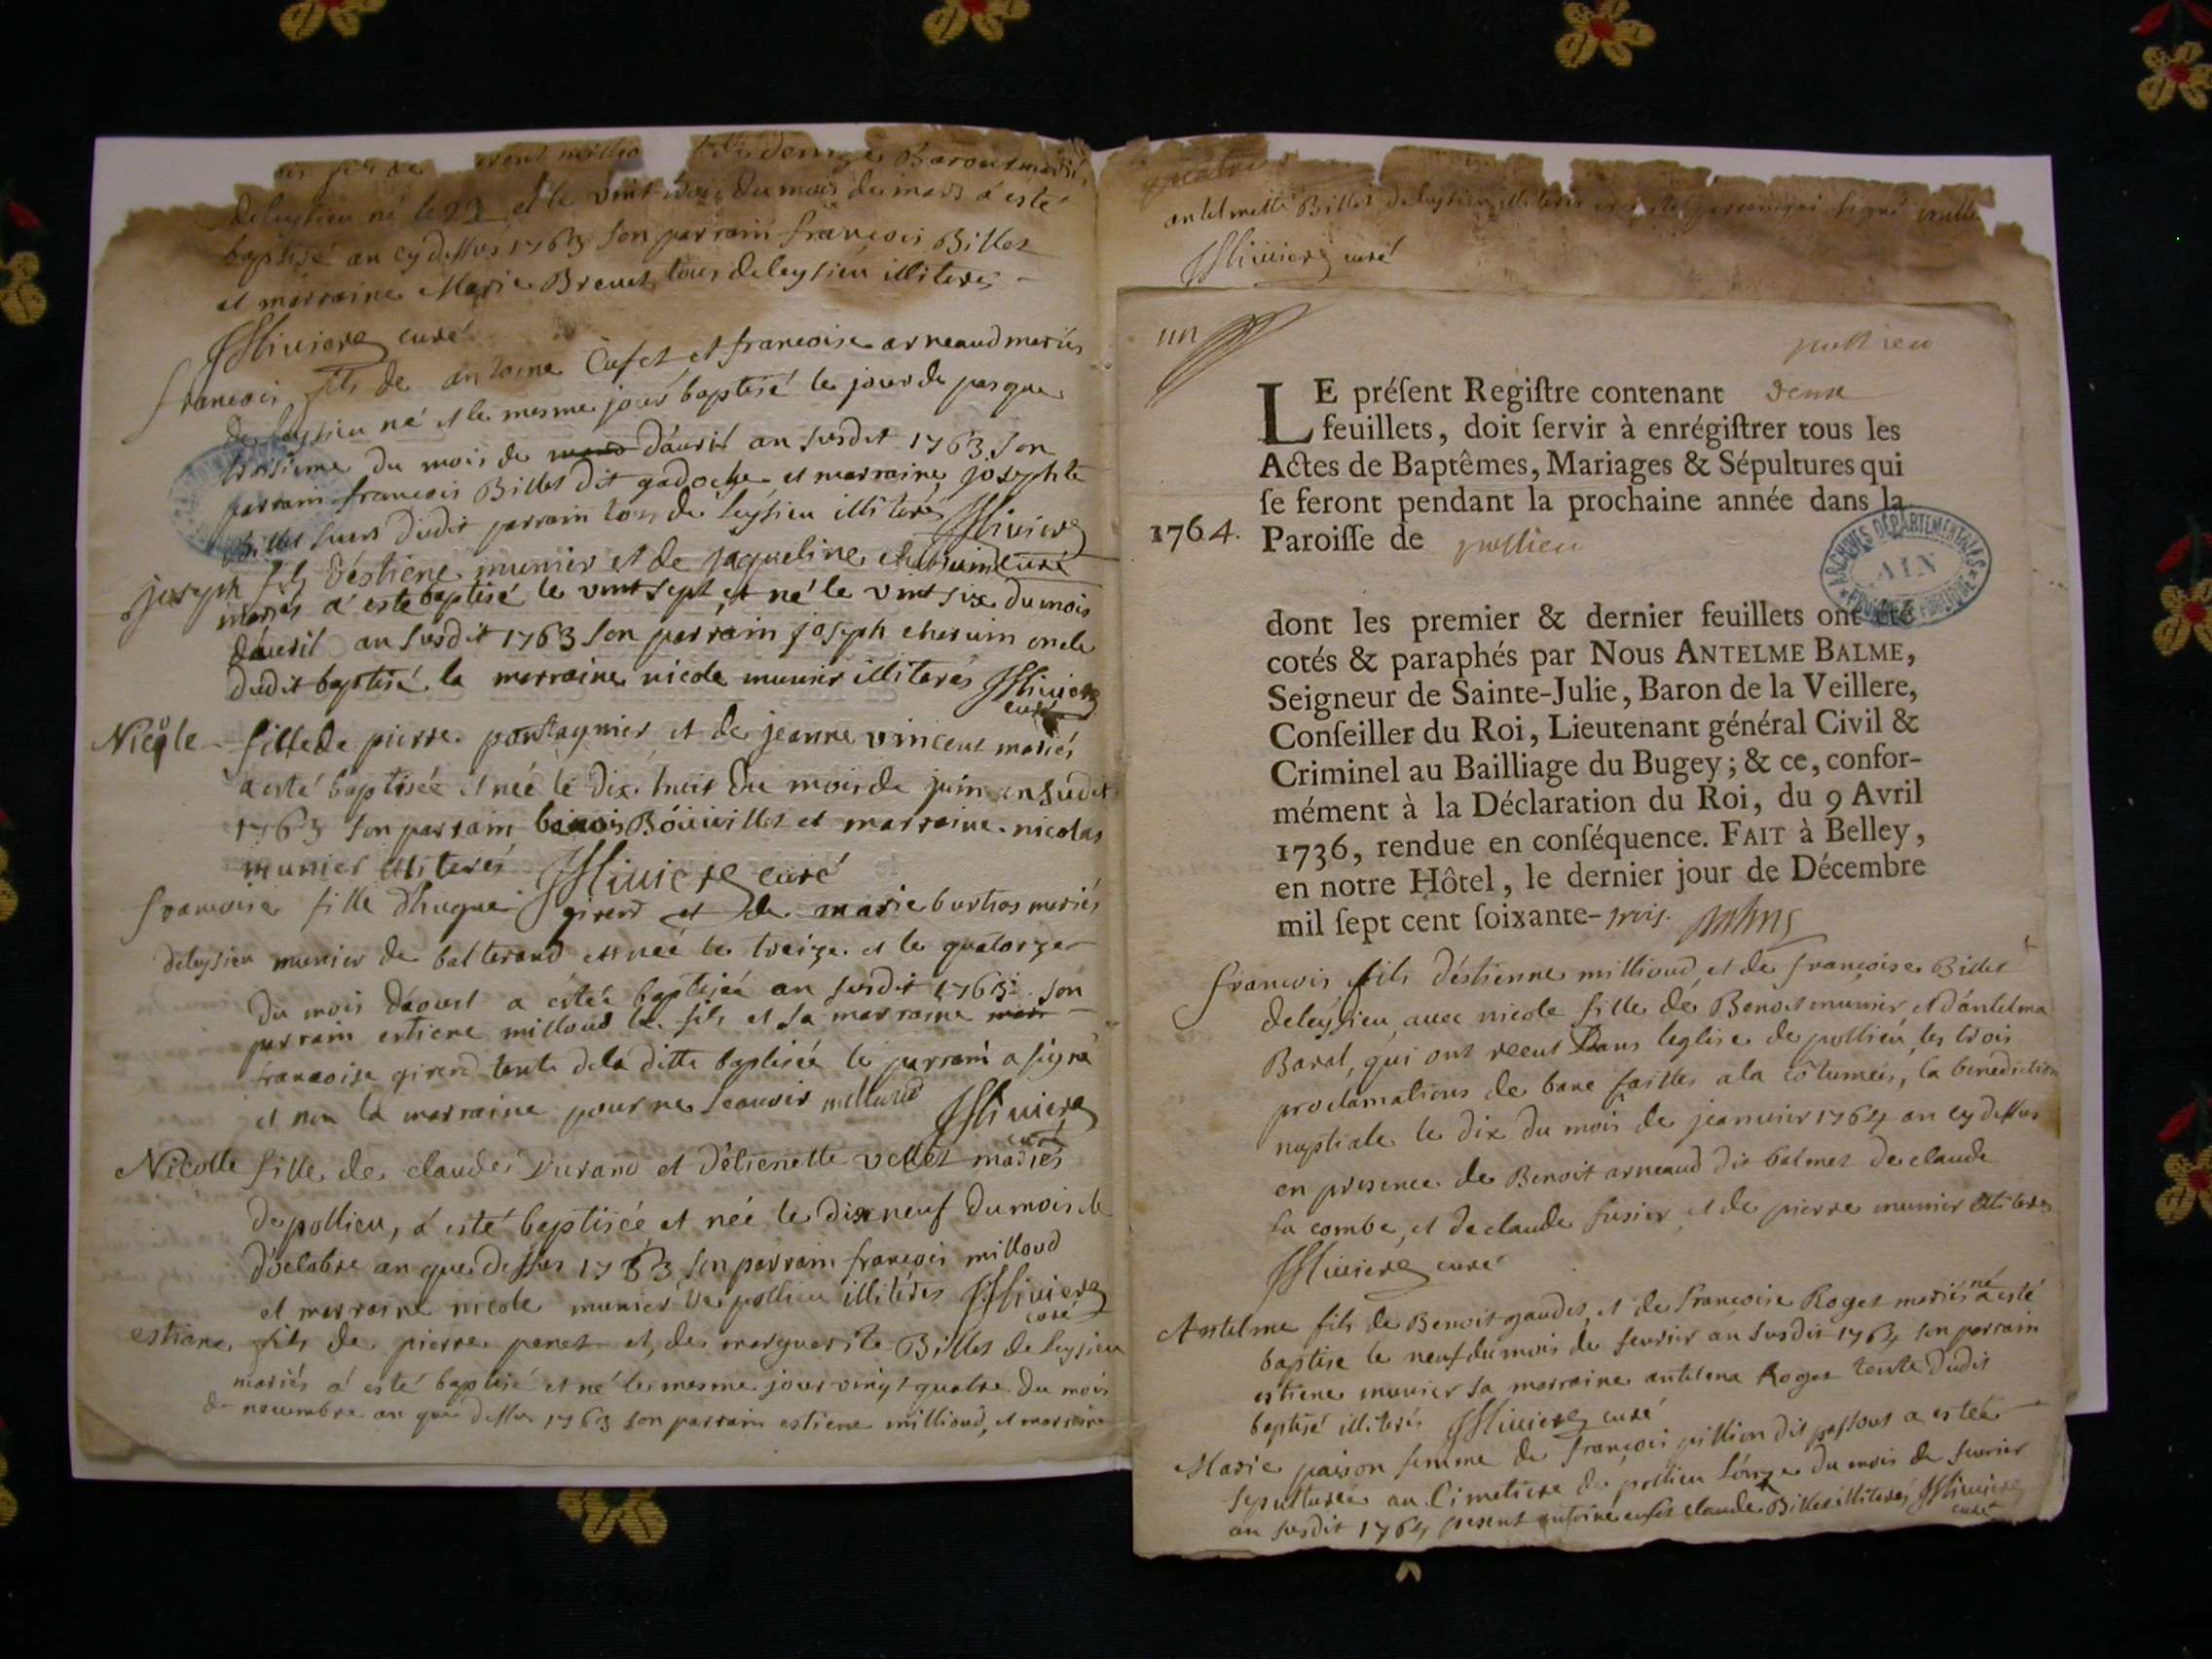 fils de denize Barou mariés
deleysieu né le 23 et le vint trois du mois de mars a esté
baptisé an cy dessus 1763 son parrain françois Billet
et marraine Marie Brevet tous de leysieu illiterés
curé
francois fils de antoine Cufet et francoise arneaud mariés
de leysieu né et le mesme jour baptisé le jour de pasque
troisieme du mois de d'auril an susdit 1763 son
parrain francois Billet dit gadoche et marraine josephte
Billet seurs dudit parrain tous de leysieu illiterés
joseph fils d'estiene munier et de jaqueline cheruin curé
mariés a esté baptisé le vint sept et né le vint six du mois
d'auril an susdit 1763 son parrain joseph cheruin oncle
dudit baptisé la marraine nicole munier illiterés
curé
Nicole fille de pierre pontagnier et de jeanne vincent mariés
a esté baptisée et née le dix huit du mois de juin an sudit
1763 son parrain benois Bouuillet et marraine nicolas
munier illiterés curé
francoise fille d'hugue girerd et de marie burtras mariés
deleysieu munier de balterand est née le treize et le quatorze
du mois d'aoust a estée baptisée an susdit 1763 son
parrain estiene milloud le fils et sa marraine
francoise girerd tente de la ditte baptisée le parrain a signé
et non la marraine pour ne scauoir milloud
curé
Nicolle fille de claude Durand et d'etienette vellet mariés
de pollieu, a esté baptisée et née le dix neuf du mois de
d'octobre an que dessus 1763 son parrain françois milloud
et marraine nicole munier de pollieu illitérés
curé
estiene fils de pierre penet et de marguerite Billet de leysieu
mariés a esté baptisé et né le mesme jour vingt quatre du mois
de nouembre an que dessus 1763 son parrain estiene millioud, et marraine
quatre
antelmette Billet deleysieu illiterés
curé
un
pollieu
LE préſent Regiſtre contenant deux
feuillets, doit ſervir à enrégiſtrer tous les
Actes de Baptêmes, Mariages & Sépultures qui
ſe feront pendant la prochaine année dans la
1764. Paroiſſe de pollieu
ARCHIVES DÉPARTEMENTALES
AIN
dont les premier & dernier feuillets ont été
cotés & paraphés par Nous ANTELME BALME,
Seigneur de Sainte-Julie, Baron de la Veillere,
Conſeiller du Roi, Lieutenant général Civil &
Criminel au Bailliage du Bugey; & ce, confor-
mément à la Déclaration du Roi, du 9 Avril
1736, rendue en conſéquence. FAIT à Belley,
en notre Hôtel, le dernier jour de Décembre
mil ſept cent ſoixante-trois.
francois fils d'éstienne millioud et de françoise Billet
deleysieu auec nicole fille de Benoit munier et d'antelma
Baral, qui ont receut Dans leglise de pollieu les trois
proclamations de banc faittes a la cotumeés, la benediction
nuptiale le dix du mois de jeanuier 1764 an cy dessus
en presence de Benoit arneaud dit balmet de claude
la combe, et de claude fusier et de pierre munier illiterés
curé
Antelme fils de Benoit gaudet, et de françoise Roget mariés né a esté
baptise le neuf du mois de feurier an susdit 1764 son parrain
estiene munier sa marraine antelma Roget tente dudit
baptisé illiterés curé
Marie paison femme de françois pillion dit passout a estée
sepulturée au cimetiere de pollieu l'onze du mois de feurier
an susdit 1764 present antoine cufet claude Billet illiterés
curé